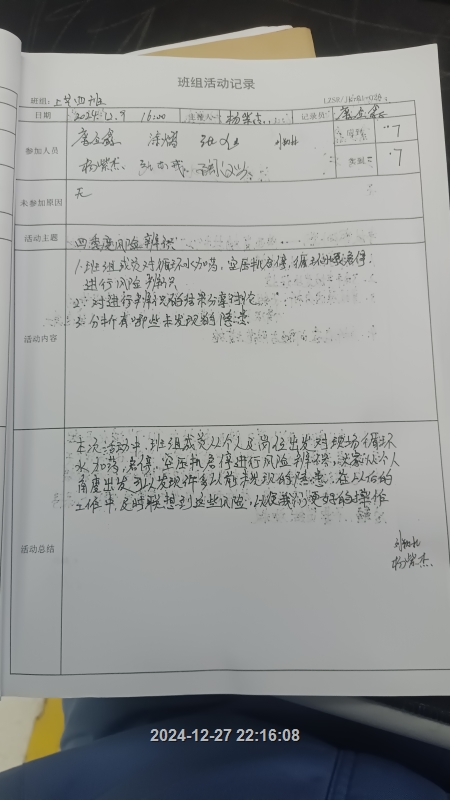 班组活动记录
班组: 上岸四班
日期 2024.12.9 16:00 主持人 杨紫杰 记录员
参加人员
杨紫杰
7
实到
7
未参加原因 无
活动主题 四季度风险辨识
活动内容
1.班组成员对循环水加药,空压机启停,循环水泵启停
进行风险辨识
2.对进行辨识的结果分享讨论
3.分析有哪些未发现的隐患
活动总结
本次活动中,班组成员从个人及岗位出发对现场循环
水加药,启停,空压机启停进行风险辨识,大家从个人
角度出发可以发现许多以前未发现的隐患.在以后的
工作中及时联想到这些风险,以便我们更好的操作
杨紫杰
2024-12-27 22:16:08